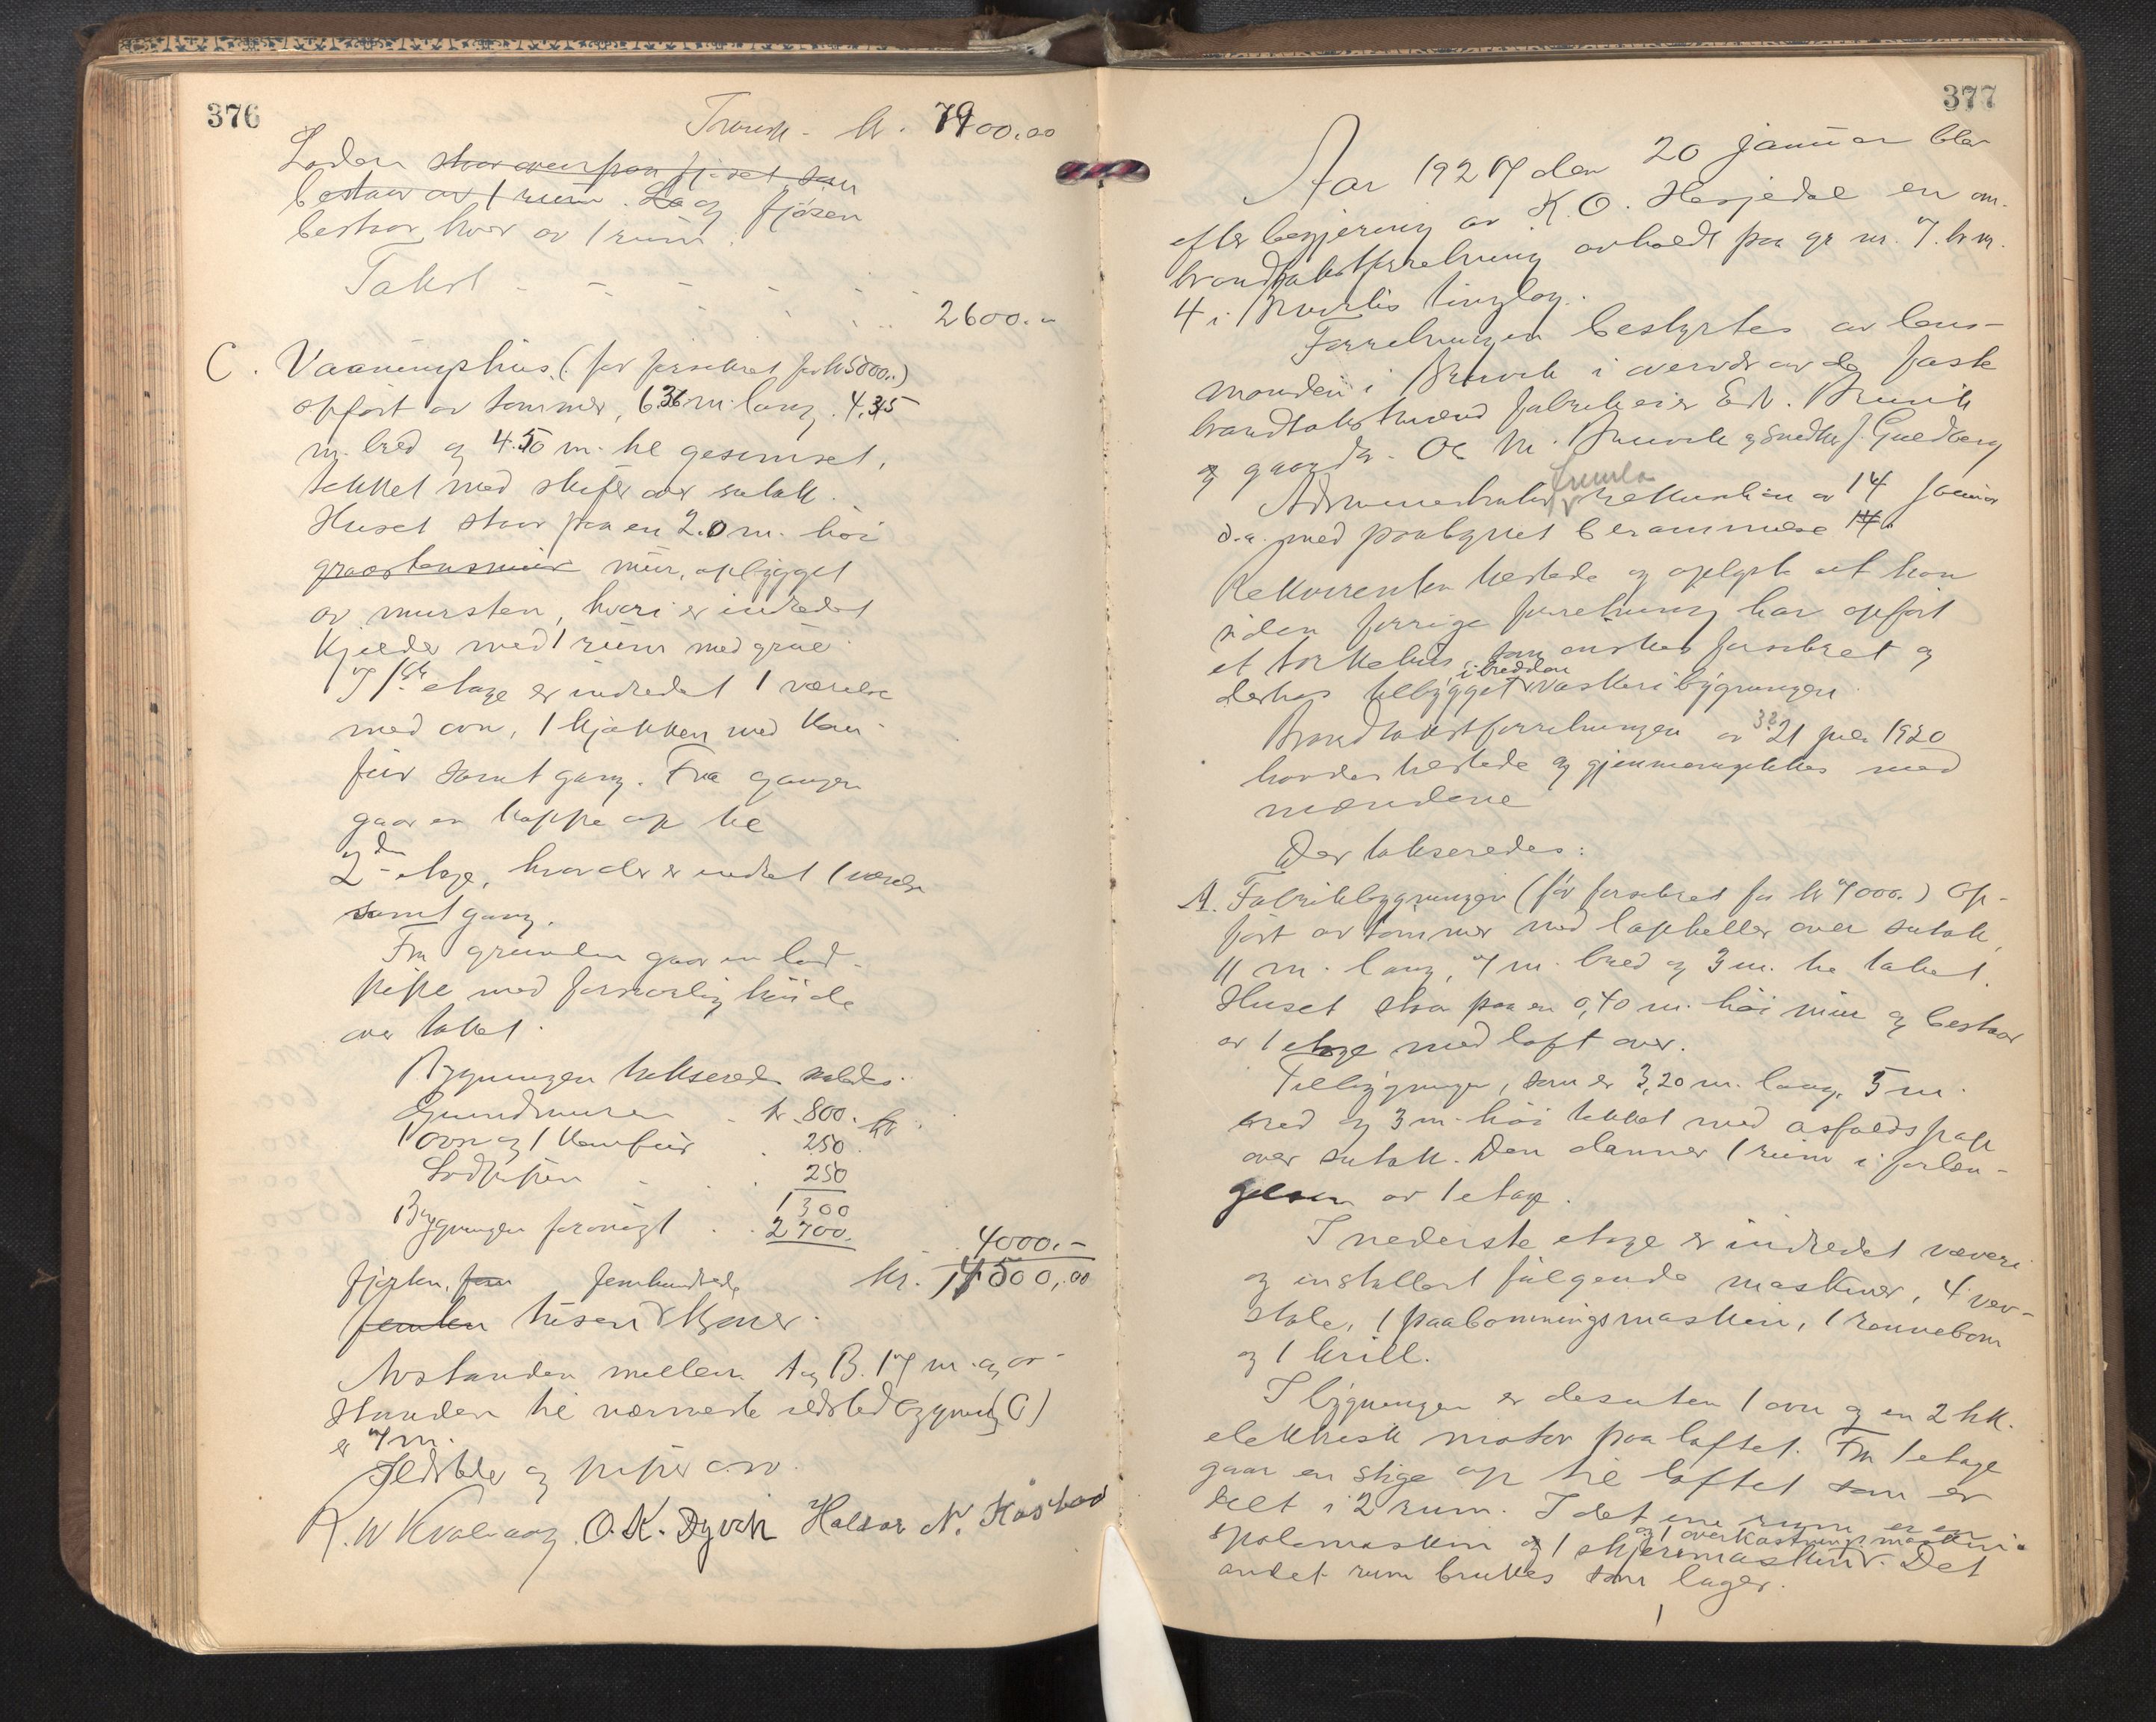 376
Transp. kr. 7900.00
Loden staar ovenpaa fjöset som
bestaar av 1 rum. og fjösen
bestaar hver av 1 rum.
Takst - - - - - 2600.-
C. Vaaningshus (för forsikret for kr 5000.-)
opfört av tömmer, 6.36 m. lang. 4,35
m. bred og 4.50 m. til gesimset,
tækket med skifer over sutak.
Huset staar paa en 2.0 m. höi
graastensmur mur, opbygget
av mursten, hvori er indredet
Kjelder med 1 rum med grue.
I 1ste etage er indredet 1 værelse
med ovn, 1 kjökken med kom-
fur samt gang. Fra gangen
gaar en trappe op til
2den etage, hvor der er indredet 1 værelse
samt gang.
Fra grunden gaar en lod-
pipe med forsvarlig höide
over taket.
Bygningen takseredes saaledes:
Grundmuren kr. 800.-
1 ovn og 1 komfur 250
Lodpipen - - 250
1300
Bygningen forövrigt 2700.
4000.-
fjorten, fem femhundrede kr. 14500,00
femten tusen kroner.
Avstanden mellem A og B. 17 m. og av-
standen til nærmeste ildsted bygning (C)
er 7 m.
Ildsteder og piper o.s.v.
R. W Kvalvaag. O. K. Dyvik Haldor N. Kosbar
377
Aar 1927 den 20 januar blev
efter begjæring av K. O. Hesjedal en om-
brandtakstforretning avholdt paa gr nr. 7. br. nr.
4 i Bruviks tinglag.
Forretningen bestyrtes av lens-
manden i Bruvik i overvær av de faste
brandtakstmænd fabrikeier Edv. Bruvik
og gaardbr. Ol. M. Bruvik og Snedker J. Guldberg
Administrator fremla rekvisition av 14 januar
d.a. med paategnet berammelse 14.
Rekvirenten tilstede og oplyste at han
siden forrige forretning har opfört
et törkehus, som önskes forsikret og
derhos tilbygget i bredden vaskeribygningen.
Brandtakstforretningen av 21 juli 1920
havdes tilstede og gjennemgikkes med
mændene
Der takseredes:
A. Fabrikbygningen (för forsikret for kr 7000.-) Op-
fört av tömmer med lapheller over sutak,
11 m. lang, 7 m. bred og 3 m. til taket.
Huset staar paa en 0,40 m. höi mur og bestaar
av 1 etage med loft over.
Tilbygningen, som er 3,20 m. lang, 5 m.
bred og 3 m. höi tækket med asfaldspap
over sutak. Den danner 1 rum i forlæn-
gelsen av 1 etage.
I nederste etage er indredet væveri
og installert fölgende maskiner, 4 væv-
stole, 1 paabommingsmaskin, 1 rennebom
og 1 krill.
I bygningen er desuten 1 ovn og en 2 hk.
elektrisk motor paa loftet. Fra 1 etage
gaar en stige op til loftet som er
delt i 2 rum. I det ene rum er en
spolemaskin og 1 skjæremaskin og 1 overkastningsmaskin. Det
andet rum brukes som lager.